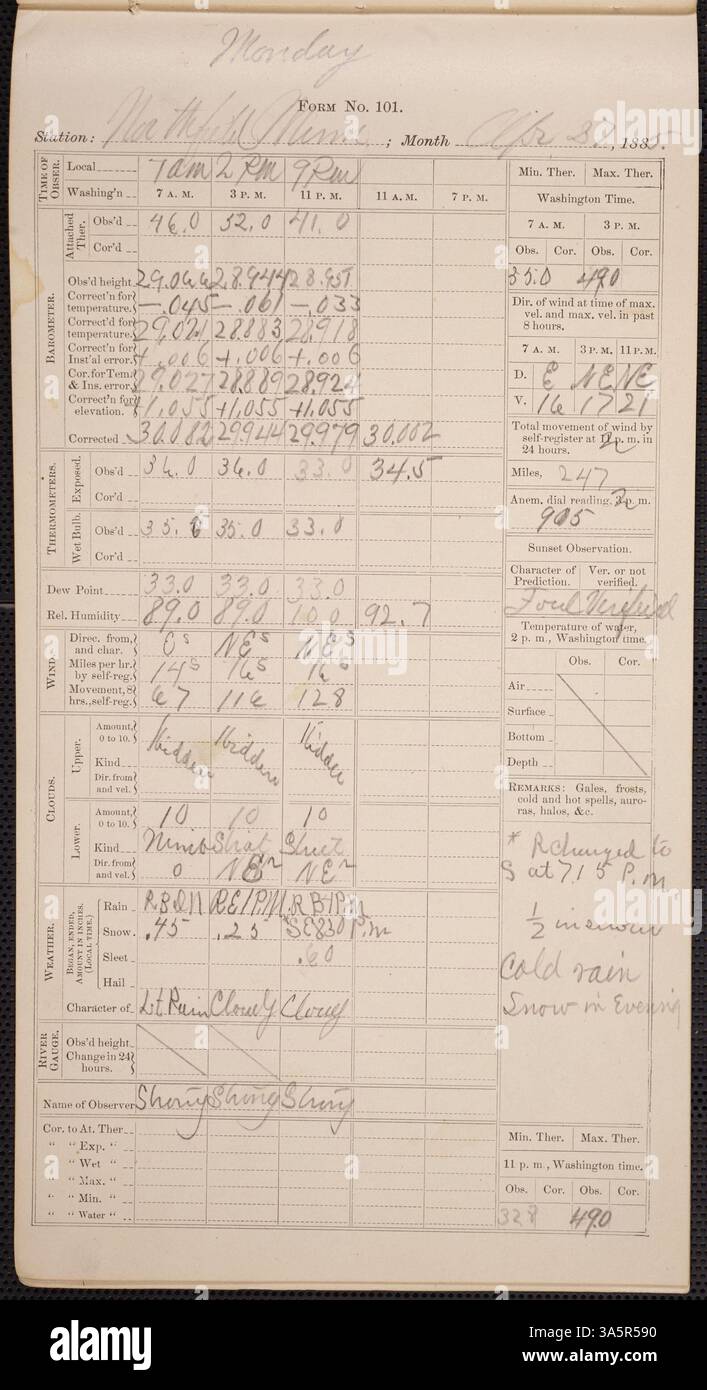 Monday
FORM No. 101.
Station: Northfield Minn ; Month Apr. 27, 1885.
TIME OF OBSER.
Local 7 am 2 Pm 9 Pm
Washing'n 7 A. M. 3 P. M. 11 P. M. 11 A. M. 7 P. M.
BAROMETER.
Attached Ther.
Obs'd 46.0 52.0 41.0
Cor'd
Obs'd height, 29.066 28.944 28.951
Correct'n for temperature. -.045 -.061 -.033
Correct'd for temperature. 29.021 28.883 28.918
Correct'n for Inst'al error. +.006 +.006 +.006
Cor. for Tem. & Ins. error. 29.027 28.889 28.924
Correct'n for elevation. +1,055 +1,055 +1.055
Corrected 30.082 29.944 29.979 30.002
THERMOMETERS.
Exposed.
Obs'd 36.0 36.0 33.0 34.5
Cor'd
Wet Bulb.
Obs'd 35.0 35.0 33.0
Cor'd
Dew Point 33.0 33.0 33.0
Rel. Humidity 89.0 89.0 100 92.7
WIND
Direc. from, and char. NE s NE s
Miles per hr. by self-reg. 14 s 16 s 16 s
Movement, 8 hrs., self-reg. 67 116 128
CLOUDS.
Upper.
Amount, 0 to 10.
Kind Hidden Hidden Hidden
Dir. from and vel.
Lower.
Amount, 0 to 10. 10 10 10
Kind Nimb Strat
Dir. from and vel. 0 NE NE
WEATHER.
BEGAN, ENDED, AMOUNT IN INCHES. (LOCAL TIME.)
Rain R B D N R E 1 P.M. R B 1 P.M
Snow .45 .25 *S E 830 P.m
Sleet .60
Hail
Character of Lt. Rain Cloudy Cloudy
RIVER GAUGE.
Obs'd height
Change in 24 hours.
Name of Observer
Cor. to At. Ther
" " Exp. "
" " Wet "
" " Max. "
" " Min. "
" " Water "
Min. Ther. Max. Ther.
Washington Time.
7 A. M. 3 P. M.
Obs. Cor. Obs. Cor.
35.0 49.0
Dir. of wind at time of max. vel. and max. vel. in past 8 hours.
7 A. M. 3 P. M. 11 P. M.
D. E NE NE
V. 16 17 21
Total movement of wind by self-register at p. m. in 24 hours.
Miles, 247
Anem. dial reading, p. m.
905
Sunset Observation.
Character of Prediction. Ver. or not verified.
Foul Verified
Temperature of water, 2 p. m., Washington time.
Obs. Cor.
Air
Surface
Bottom
Depth
REMARKS: Gales, frosts, cold and hot spells, auroras, halos, &c.
* R changed to
S at 715 P.m
1/2 in snow
Cold rain
Snow in Evening
Min. Ther. Max. Ther.
11 p. m., Washington time.
Obs. Cor. Obs. Cor.
32.8 49.0
3A5R590